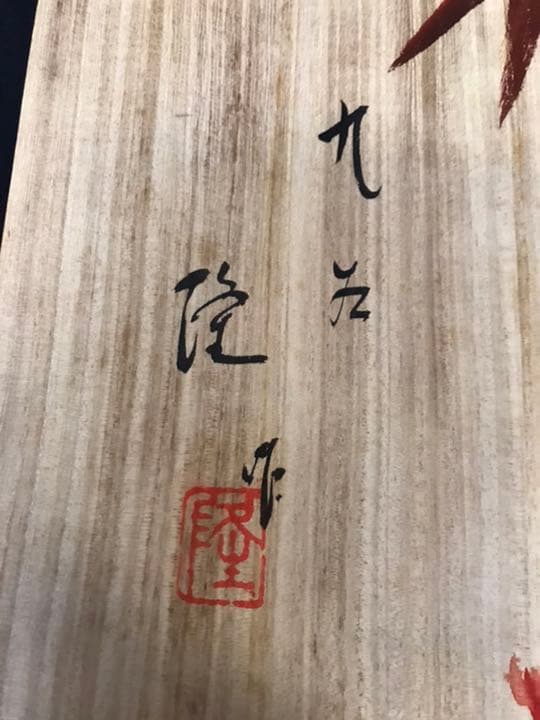 九
隆作
隆